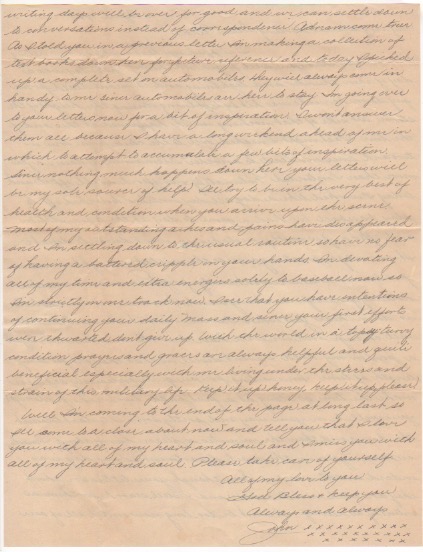 writing days will be over for good and we can settle down
to conversations instead of correspondence. A dream come true
As I told you in a previous letter I'm making a collection of
text books down here for future reference and today I picked
up a complete set on automobiles they will always come in
handy to me since automobiles are here to stay. I'm going over
to your letters now for a bit of inspiration. I won't answer
them all because I have a long weekend ahead of me in
which to attempt to accumulate a few bits of inspiration
Since nothing much happens down here your letters will
be my sole source of help. I'll try to be in the very best of
health and condition when you arrive upon the scene.
Most of my outstanding aches and pains have disappeared
and I'm settling down to the usual routine so have no fear
of having a battered cripple in your hands. I'm devoting
all of my time and extra energies solely to baseball now as
I'm strictly on one track now. I see that you have intentions
of continuing your daily Mass and since your first effort
were thwarted don't give up. With the world in a topsy turvy
condition prayers and graces are always helpful and quite
beneficial especially with me living under the stress and
strain of this military life. Keep it up honey keep it up please!
Well I'm coming to the end of the page at long last so
I'll come to a close about now and tell you that I love
you with all of my heart and soul and I miss you with
all of my heart and soul. Please take care of yourself
All of my love to you
God Bless & keep you
Always and Always
John x x x x x x x x x
x x x x x x x x x
x x x x x x x